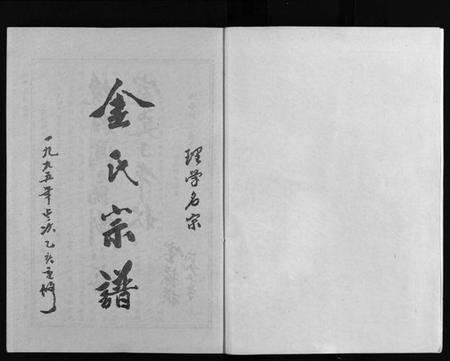 理学名宗
金氏宗譜
一九九五年歲次乙亥重修